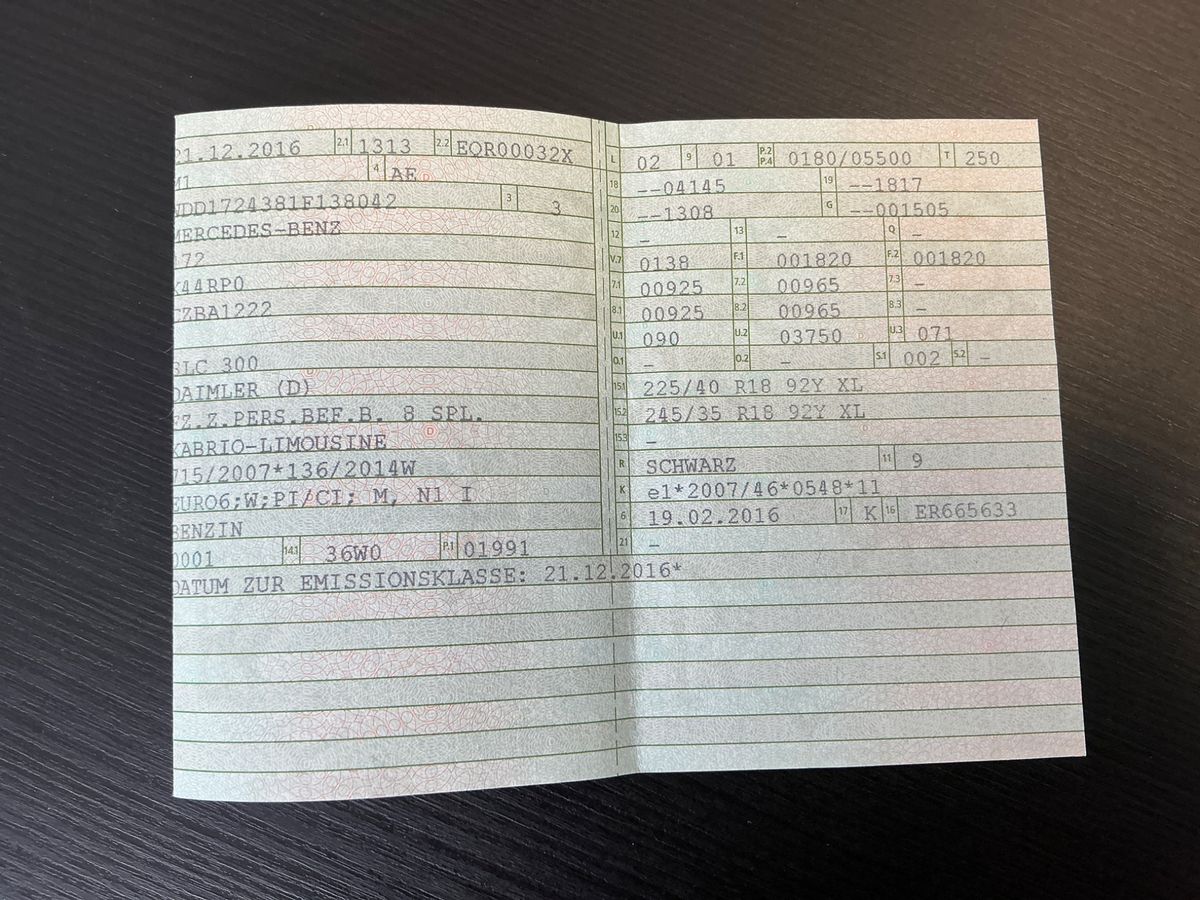 21.12.2016 2.1 1313 2.2 EQR00032X
M1 4 AE
WDD1724381F138042 3 3
MERCEDES-BENZ
172
K44RP0
CZBA1222
SLC 300
DAIMLER (D)
FZ.Z.PERS.BEF.B. 8 SPL.
KABRIO-LIMOUSINE
715/2007*136/2014W
EURO6;W;PI/CI; M, N1 I
BENZIN
0001 14.1 36W0 P.1 01991
DATUM ZUR EMISSIONSKLASSE: 21.12.2016*
L 02 9 01 P.2 P.4 0180/05500 T 250
18 --04145 19 --1817
20 --1308 G --001505
12 - 13 - Q -
V.7 0138 F.1 001820 F.2 001820
7.1 00925 7.2 00965 7.3 -
8.1 00925 8.2 00965 8.3 -
U.1 090 U.2 03750 U.3 071
O.1 - O.2 - S.1 002 S.2 -
15.1 225/40 R18 92Y XL
15.2 245/35 R18 92Y XL
15.3 -
R SCHWARZ 11 9
K e1*2007/46*0548*11
6 19.02.2016 17 K 16 ER665633
21 -